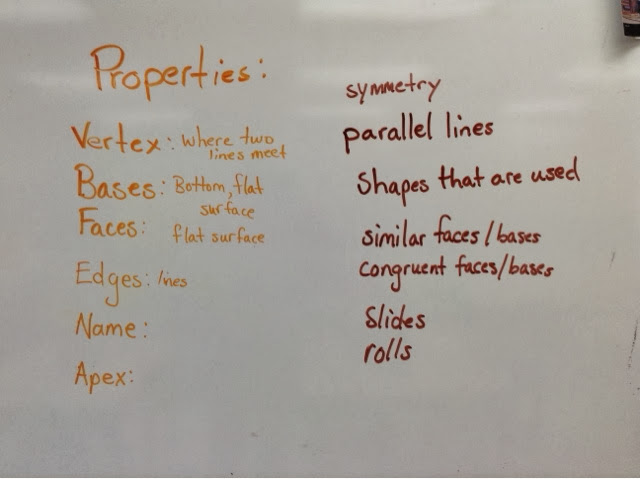 Properties:
Vertex: where two
lines meet
Bases: Bottom, flat
surface
Faces:
flat surface
Edges: lines
Name:
Apex:
symmetry
parallel lines
Shapes that are used
similar faces/bases
congruent faces/bases
Slides
rolls